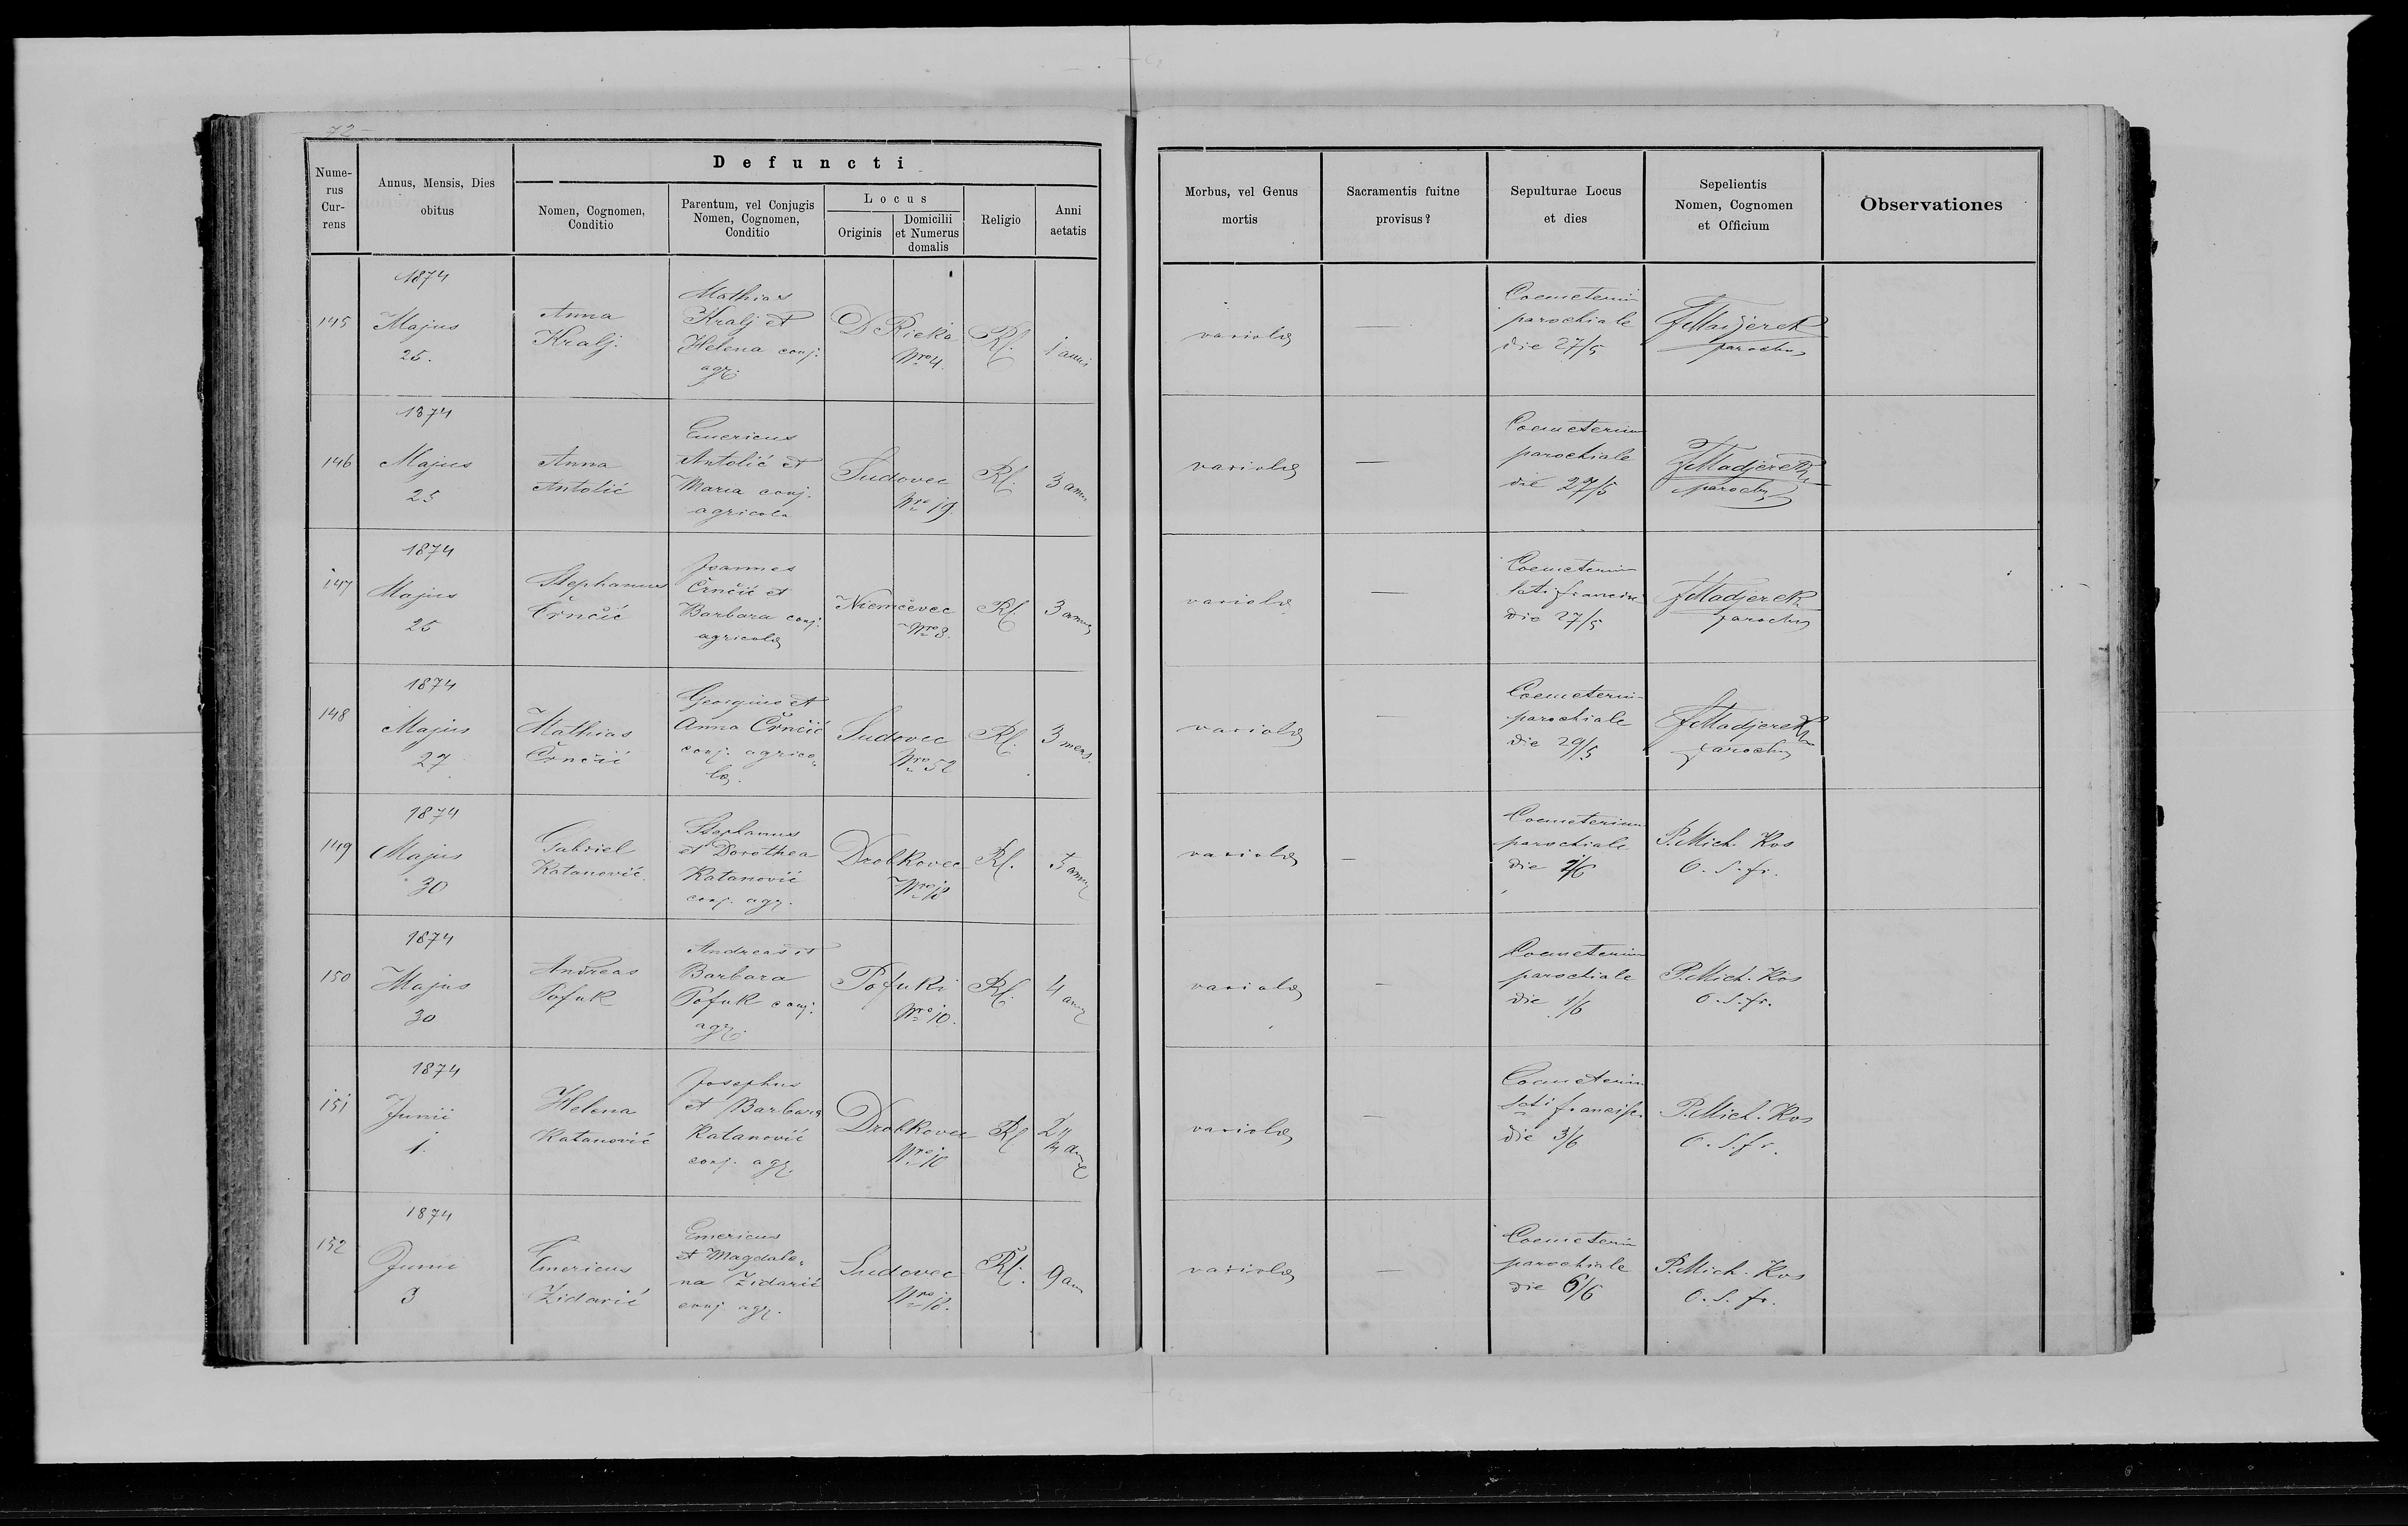 72
Defuncti
Nume-
rus
Cur-
rens
Annus, Mensis, Dies
obitus
Nomen, Cognomen,
Conditio
Parentum, vel Conjugis
Nomen, Cognomen,
Conditio
Locus
Originis
Domicilii
et Numerus
domalis
Religio
Anni
aetatis
Morbus, vel Genus
mortis
Sacramentis fuitne
provisus?
Sepulturae Locus
et dies
Sepelientis
Nomen, Cognomen
et Officium
Observationes
145
1874
Majus
25.
Anna
Kralj.
Mathias
Kralj et
Helena conj.
agr.
D Rieka
Nro 4.
Rl.
1 anni
variola
—
Coemeterium
parochiale
die 27/5
FMadjerek
parochus
146
1874
Majus
25
Anna
Antolić
Emericus
Antolić et
Maria conj.
agricola
Sudovec
Nro 19.
Rl.
3 ann
variola
—
Coemeterium
parochiale
die 27/5
FMadjerek
parochus
147
1874
Majus
25
Stephanus
Črnčić
Joannes
Črnčić et
Barbara conj.
agricola
Niemčevec
Nro 8.
Rl.
3 ann
variola
—
Coemeterium
Scti francisci
die 27/5
FMadjerek
parochus
148
1874
Majus
27
Mathias
Črnčić
Georgius et
Anna Črnčić
conj. agrico„
la.
Sudovec
Nro 52
Rl.
3 mens.
variola
—
Coemeterium
parochiale
die 29/5
FMadjerek
parochus
149
1874
Majus
30
Gabriel
Katanović
Stephanus
et Dorothea
Katanović
conj. agr.
Drobkovec
Nro
Rl.
ann
variola
—
Coemeterium
parochiale
die 1/6
P. Mich. Kos
O. S. fr.
150
1874
Majus
30
Andreas
Pofuk
Andreas et
Barbara
Pofuk conj.
agr.
Pofuki
Nro 10.
Rl.
4 ann
variola
—
Coemeterium
parochiale
die 1/6
P. Mich. Kos
O. S. fr.
151
1874
Junii
1.
Helena
Katanović
Josephus
et Barbara
Katanović
conj. agr.
Drobkovec
Nro
Rl
variola
—
Coemeterium
Scti francisc.
die 3/6
P. Mich. Kos
O. S. fr.
152
1874
Junii
3
Emericus
Zidarić
Emericus
et Magdale„
na Zidarić
conj. agr.
Sudovec
Nro 18.
Rl.
9 ann
variola
—
Coemeterium
parochiale
die 6/6
P. Mich. Kos
O. S. fr.